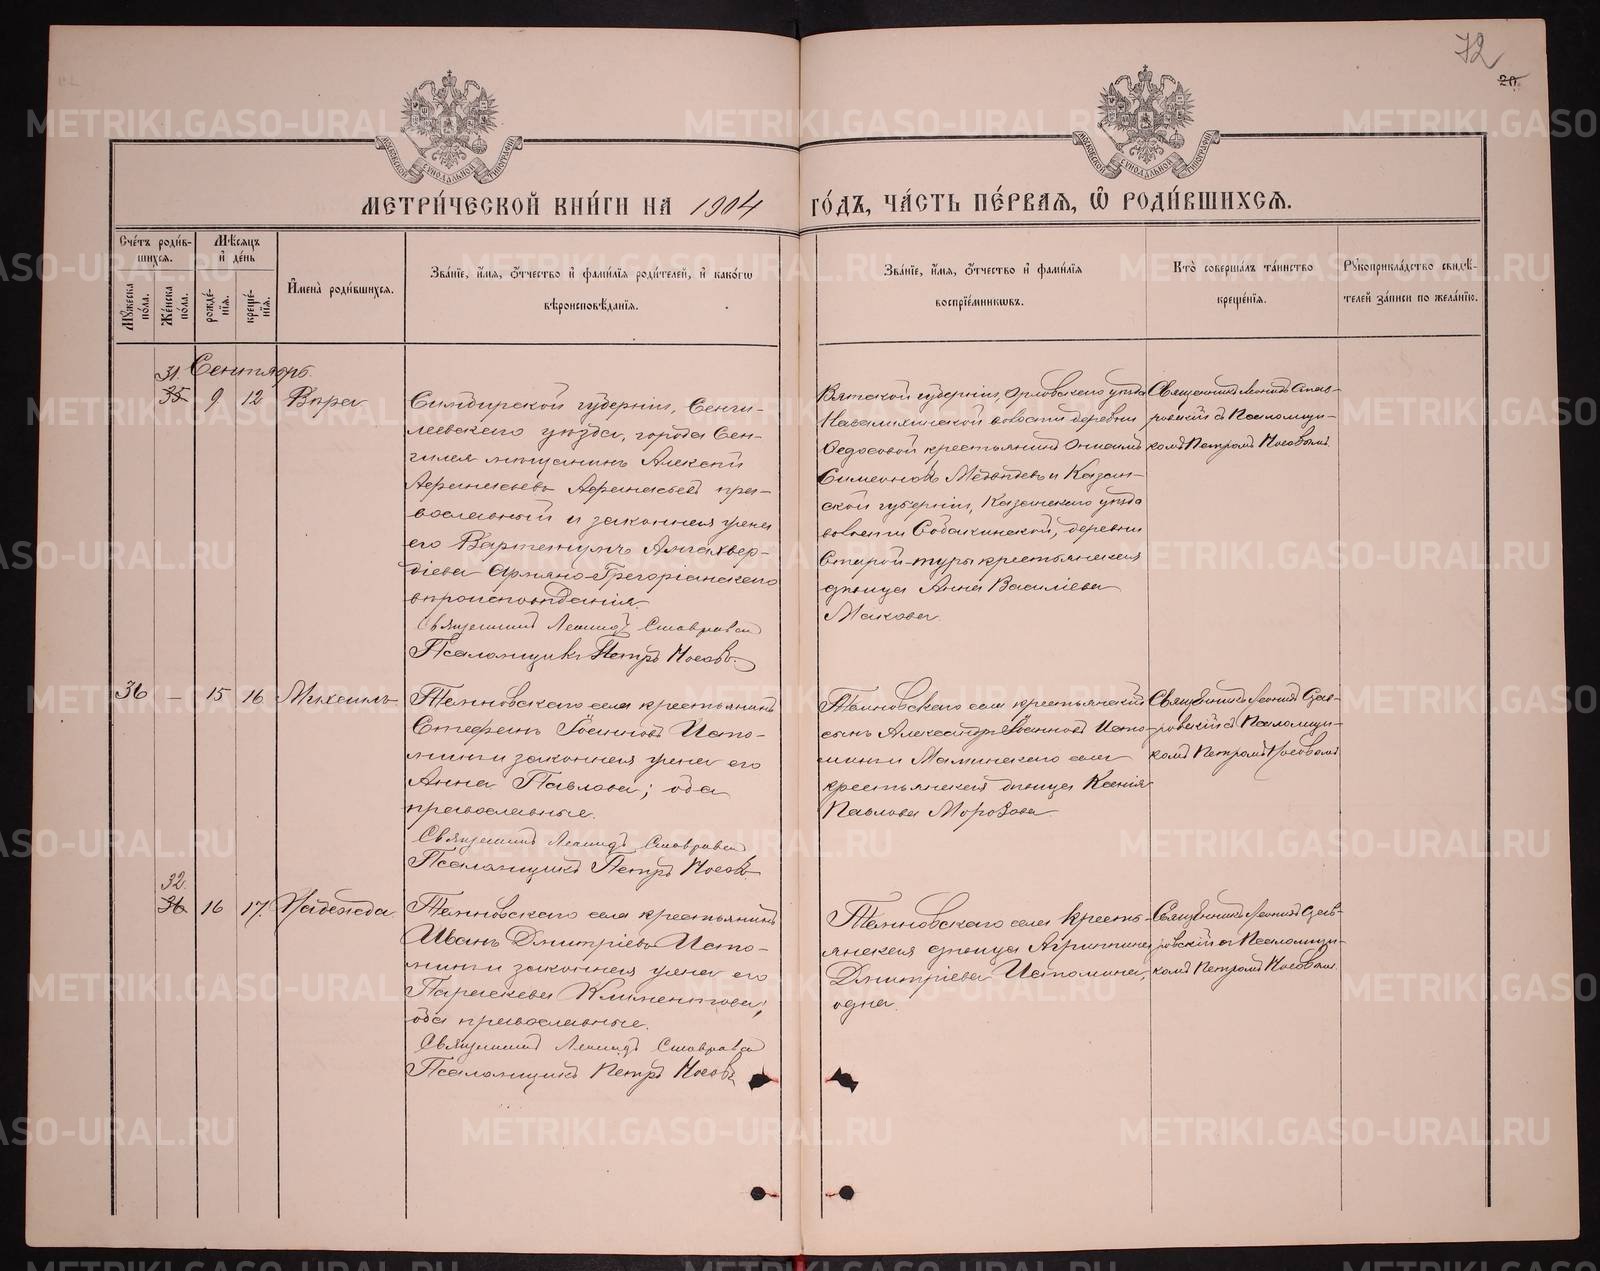 72
20.
МОСКОВСКОЙ СѴНОДАЛЬНОЙ ТИПОГРАФІИ
МОСКОВСКОЙ СѴНОДАЛЬНОЙ ТИПОГРАФІИ
МЕТРИ́ЧЕСКОЙ КНИ́ГИ НА 1904 ГО́ДЪ, ЧА́СТЬ ПЕ́РВАѦ, Ѿ РОДИ́ВШИХСѦ.
Сче́тъ роди́в-
шихсѧ.
Мꙋ́жеска по́ла.
Же́нска по́ла.
Мѣ́сѧцъ
и҆ де́нь
рожде́-
нїѧ.
креще́-
нїѧ.
И҆мена̀ роди́вшихсѧ.
Зва́нїе, и҆́мѧ, ѻ҆́тчество и҆ фами́лїѧ роди́телей, и҆ како́гѡ
вѣроисповѣ́данїѧ.
Зва́нїе, и҆́мѧ, ѻ҆́тчество и҆ фами́лїѧ
воспрїе́мникѡвъ.
Кто̀ соверша́лъ та́инство
креще́нїѧ.
Рꙋкоприкла́дство свидѣ́-
телей за́писи по жела́нїю.
Сентябрь.
31.
35 9 12 Вѣра
Симбирской губерніи, Сенги-
леевскаго уѣзда, города Сен-
гилея мѣщанинъ Алексѣй
Афанасьевъ Афанасьевъ пра-
вославный и законная жена
его Вартенумъ Аллахвер-
діева Армяно-Грегоріанскаго
вѣроисповѣданія.
Священникъ Леонидъ Ставровскій
Псаломщикъ Петръ Носовъ.
Вятской губерніи, Орловскаго уѣзда
волости деревни
Ѳедосовой крестьянинъ
Симеоновъ Медвѣдевъ и Казан-
ской губерніи, Казанскаго уѣзда
волости Собакинской, деревни
Старой-туры крестьянская
дѣвица Анна Василіева
Макова.
Священникъ Леонидъ Став-
ровскій съ Псаломщи-
комъ Петромъ Носовымъ
36 – 15 16 Михаилъ
Темновскаго села крестьянинъ
Стефанъ Іоанновъ Исто-
минъ и законная жена его
Анна Павлова; оба
православные.
Священникъ Леонидъ Ставровскій
Псаломщикъ Петръ Носовъ
Темновскаго села крестьянскій
сынъ Александръ Іоанновъ Исто-
минъ и Маминскаго села
крестьянская дѣвица Ксенія
Павлова Морозова.
Священникъ Леонидъ Став-
ровскій съ Псаломщи-
комъ Петромъ Носовымъ
32.
36 16 17. Надежда
Темновскаго села крестьянинъ
Иванъ Дмитріевъ Исто-
минъ и законная жена его
Параскева Климентова;
оба православные.
Священникъ Леонидъ Ставровскій
Псаломщикъ Петръ Носовъ
Темновскаго села кресть-
янская дѣвица Агриппина
Дмитріева Истомина,
одна.
Священникъ Леонидъ Став-
ровскій съ Псаломщи-
комъ Петромъ Носовымъ.
METRIKI.GASO-URAL.RU